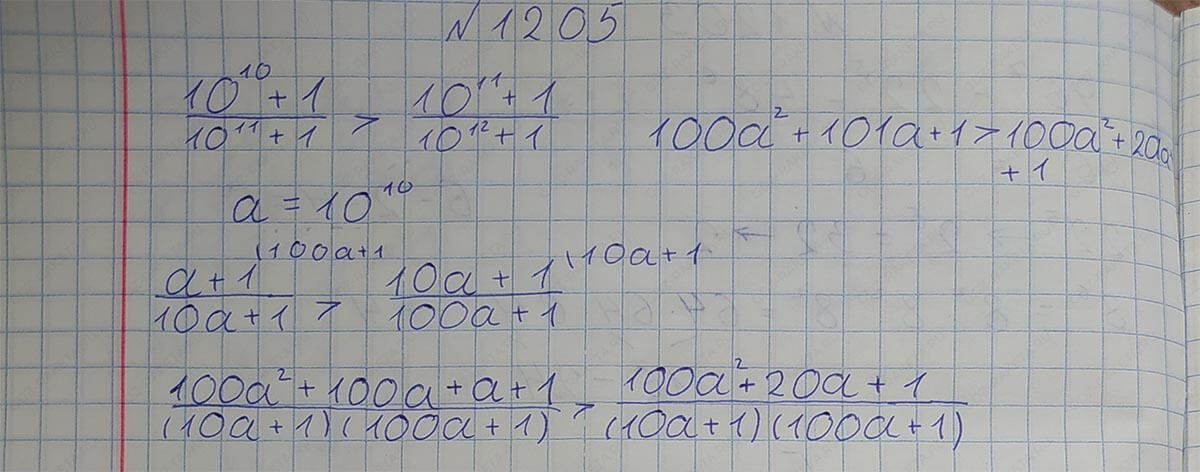 № 1205
(10^10 + 1)/(10^11 + 1) > (10^11 + 1)/(10^12 + 1)
100a² + 101a + 1 > 100a² + 20a
+ 1
a = 10^10
(a + 1)/(10a + 1) \100a+1 > (10a + 1)/(100a + 1) \10a+1
(100a² + 100a + a + 1)/((10a + 1)(100a + 1)) > (100a² + 20a + 1)/((10a + 1)(100a + 1))